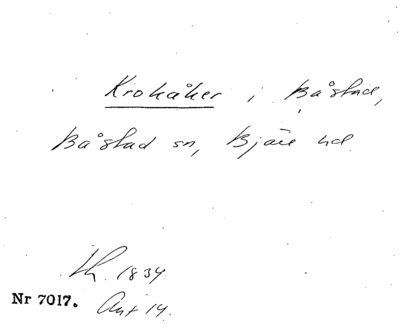 Krokåker i Båstad,
Båstad sn, Bjäre hd
th. 1834
Nr 7017. Akt 14.